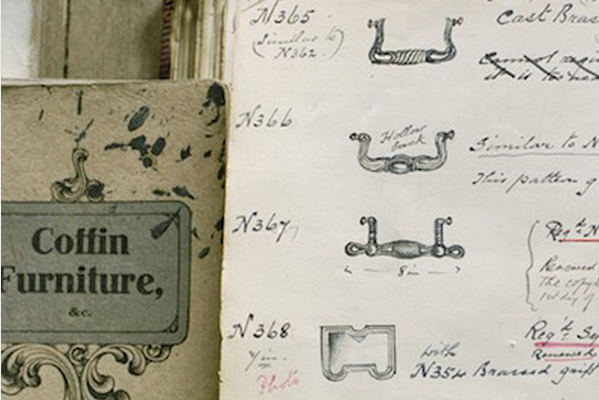 Coffin
Furniture,
&c.
N365
(Similar to
N362.)
Cast Bras
it is to
N366
Hollow
back
Similar to N
This pattern g
N367
8 in
Regd. N
Renewed
The copy
1st day of
N368
7 in.
Photo
with
N354 Brassed grip
Regd. Se
Renewed